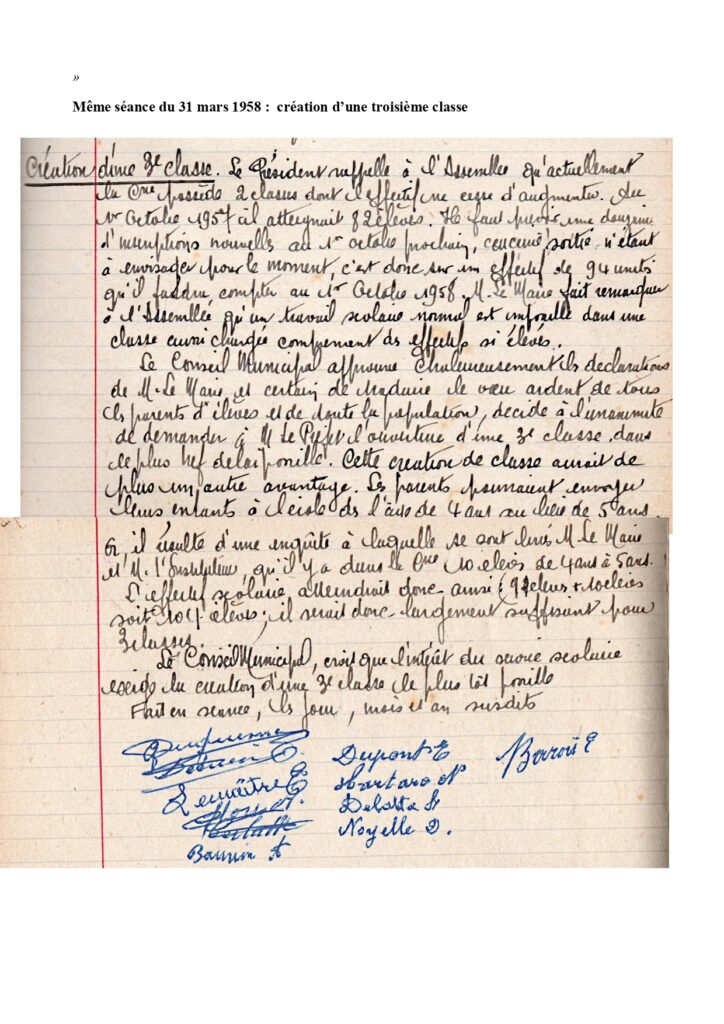 »
Même séance du 31 mars 1958 : création d’une troisième classe
Création d'une 3e classe. Le Président rappelle à l'Assemblée qu'actuellement
la Cne possède 2 classes dont l'effectif ne cesse d'augmenter. Au
1er Octobre 1957 il atteignait 82 élèves. Il faut prévoir une douzaine
d'inscriptions nouvelles au 1er octobre prochain, aucune sortie n'étant
à envisager pour le moment, c'est donc sur un effectif de 94 unités
qu'il faudra compter au 1er Octobre 1958. M. Le Maire fait remarquer
à l'Assemblée qu'un travail scolaire normal est impossible dans une
classe aussi chargée comprenant des effectifs si élevés.
Le Conseil Municipal approuve Chaleureusement les déclarations
de M. Le Maire et certain de traduire le vœu ardent de tous
les parents d'élèves et de toute la population, décide à l'unanimité
de demander à M. Le Préfet l'ouverture d'une 3e classe dans
le plus bref délai possible. Cette création de classe aurait de
plus un autre avantage. Les parents pourraient envoyer
leurs enfants à l'école dès l'âge de 4 ans au lieu de 5 ans
Or, il résulte d'une enquête à laquelle se sont livrés M. Le Maire
et M. l'Instituteur, qu'il y a dans la Cne 10 élèves de 4 ans à 5 ans.
L'effectif scolaire, atteindrait donc ainsi : 94 élèves + 10 élèves
soit 104 élèves ; il serait donc largement suffisant pour
3 classes.
Le Conseil Municipal, croit que l'intérêt du service scolaire
exige la création d'une 3e classe le plus tôt possible
Fait en séance, les jour, mois et an susdits
Dupont E
Lemaître E
Delatte
Noyelle D.